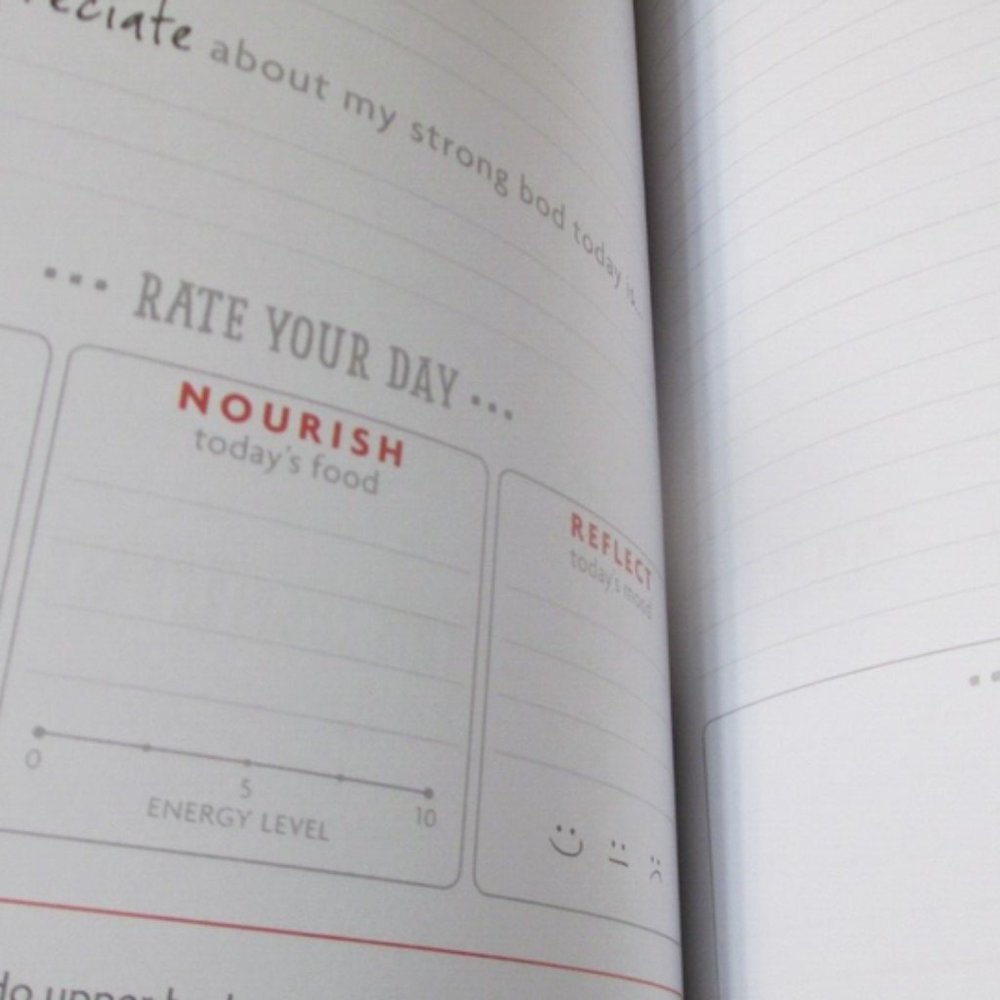 about my strong bod today is...
... RATE YOUR DAY ...
NOURISH
today's food
0 5 10
ENERGY LEVEL
REFLECT
today's mood
upper